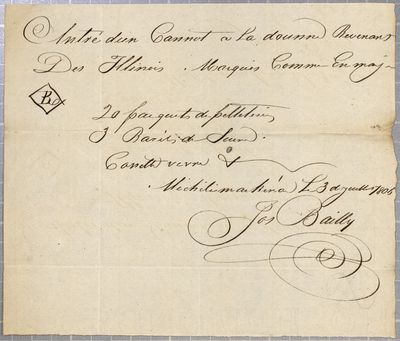 Antre d'un Cannot a la dounne Revenant
Des Illinois. Marquis Comme En maj
20 paquets de pelletries
3 Barils de
Cassette verre &
Michilimackinac Le 3 de juillet 1806
Jos Bailly